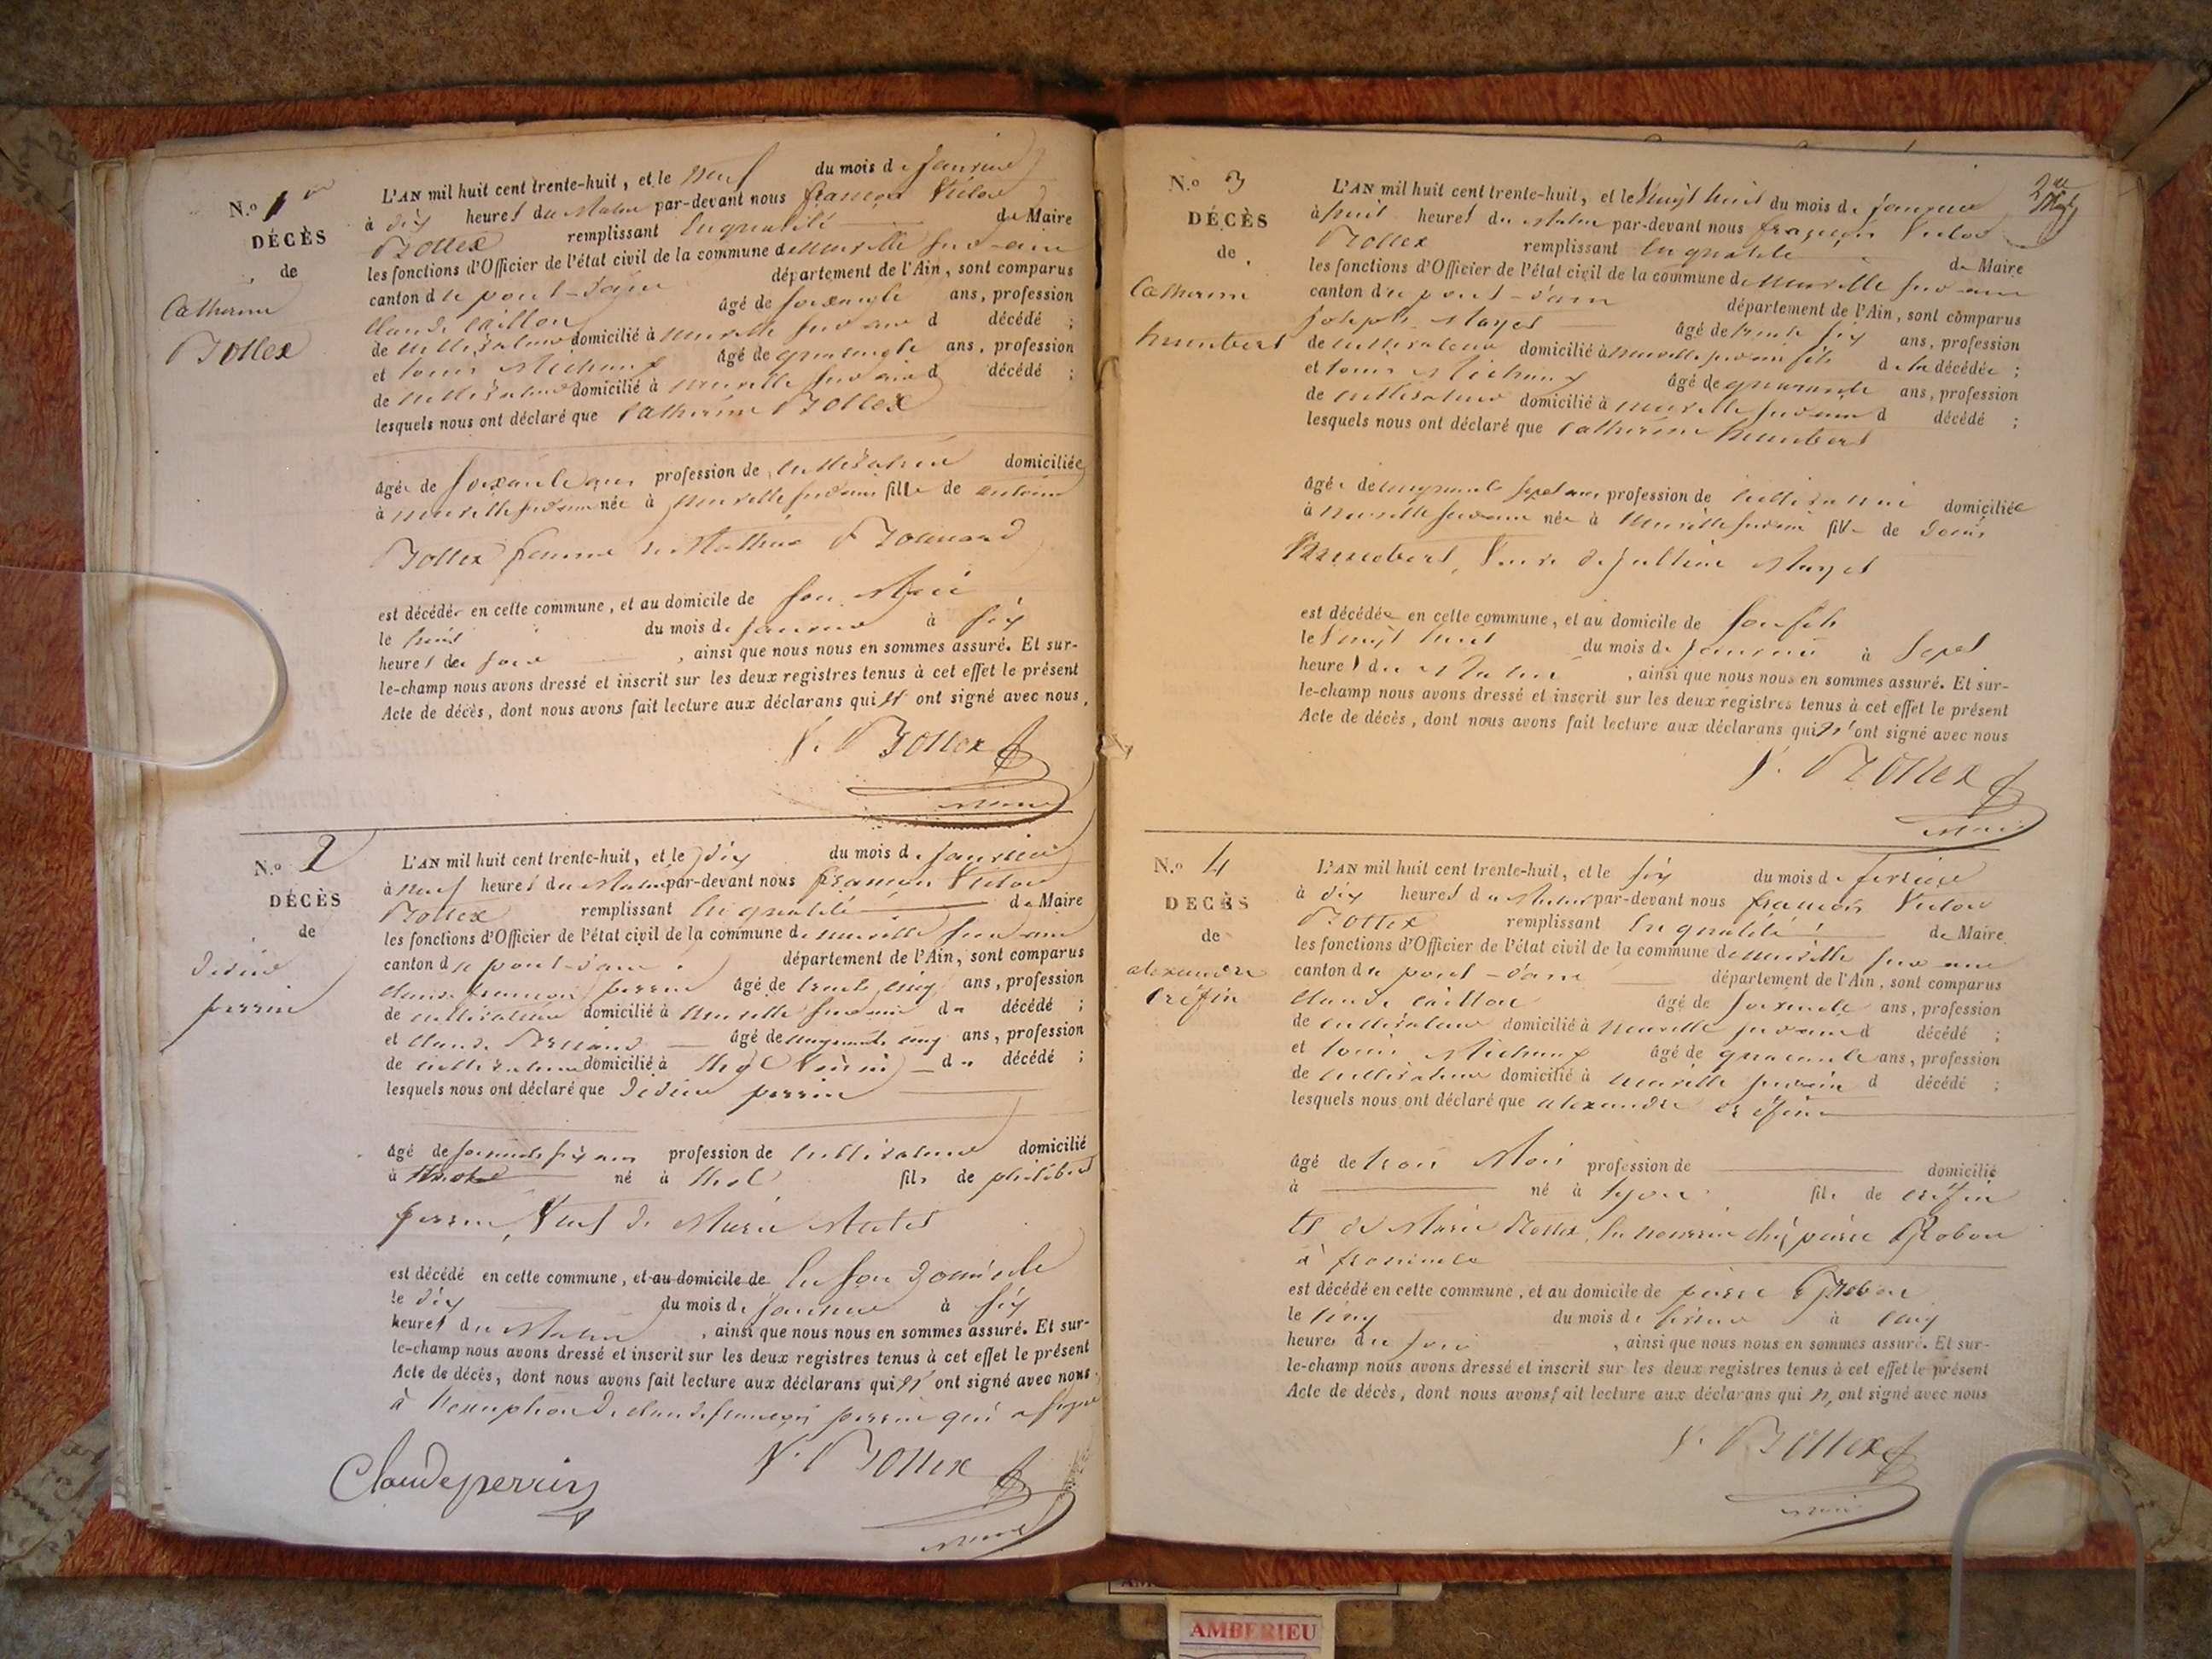 N.o 1er
DÉCÈS
de
Catherine
Bollex
L'AN mil huit cent trente-huit, et le neuf du mois de janvier
à dix heures du matin par-devant nous françois Victor
Bollex remplissant en qualité de Maire
les fonctions d'Officier de l'état civil de la commune de neuville sur-ain
canton de pont-d'ain département de l'Ain, sont comparus
Claude Caillon âgé de soixante ans, profession
de cultivateur domicilié à neuville sur ain d décédé ;
et louis Michaux âgé de quarante ans, profession
de cultivateur domicilié à neuville sur ain d décédé ;
lesquels nous ont déclaré que Catherine Bollex
âgée de soixante ans profession de cultivatrice domiciliée
à neuville sur ain née à neuville sur ain fille de antoine
Bollex femme de Mathieu
est décédée en cette commune, et au domicile de son Mari
le huit du mois de janvier à six
heures du soir , ainsi que nous nous en sommes assuré. Et sur-
le-champ nous avons dressé et inscrit sur les deux registres tenus à cet effet le présent
Acte de décès, dont nous avons fait lecture aux déclarans qui n' ont signé avec nous.
V. Bollex
maire
N.o 2
DÉCÈS
de
Didier
perrin
L'AN mil huit cent trente-huit, et le dix du mois de janvier
à neuf heures du Matin par-devant nous françois Victor
Bollex remplissant en qualité de Maire
les fonctions d'Officier de l'état civil de la commune de neuville sur-ain
canton de pont-d'ain département de l'Ain, sont comparus
Claude françois perrin âgé de trente cinq ans, profession
de cultivateur domicilié à neuville sur ain du décédé ;
et Claude âgé de cinquante cinq ans, profession
de cultivateur domicilié à Thol du décédé ;
lesquels nous ont déclaré que Didier perrin
âgé de soixante six ans profession de cultivateur domicilié
à né à Thol fils de philibert
perrin, Veuf de Marie
est décédé en cette commune, et au domicile de en son Domicile
le dix du mois de janvier à six
heures du Matin , ainsi que nous nous en sommes assuré. Et sur-
le-champ nous avons dressé et inscrit sur les deux registres tenus à cet effet le présent
Acte de décès, dont nous avons fait lecture aux déclarans qui n' ont signé avec nous.
à l'exception de claude françois perrin qui a signé
Claude perrin
V. Bollex
maire
N.o 3
DÉCÈS
de
Catherine
humbert
L'AN mil huit cent trente-huit, et le Vingt huit du mois de janvier
à huit heures du Matin par-devant nous françois Victor
Bollex remplissant en qualité de Maire
les fonctions d'Officier de l'état civil de la commune de neuville sur-ain
canton de pont-d'ain département de l'Ain, sont comparus
joseph Mayet âgé de trente six ans, profession
de cultivateur domicilié à neuville sur ain fils de la décédée ;
et louis Michaux âgé de quarante ans, profession
de cultivateur domicilié à neuville sur ain d décédé ;
lesquels nous ont déclaré que Catherine humbert
âgée de cinquante sept ans profession de cultivatrice domiciliée
à neuville sur ain née à neuville sur ain fille de Denis
humbert, Veuve de Mayet
est décédée en cette commune, et au domicile de son fils
le Vingt huit du mois de janvier à sept
heures du Matin , ainsi que nous nous en sommes assuré. Et sur-
le-champ nous avons dressé et inscrit sur les deux registres tenus à cet effet le présent
Acte de décès, dont nous avons fait lecture aux déclarans qui n' ont signé avec nous
V. Bollex
maire
N.o 4
DECÈS
de
alexandre
Créfin
L'AN mil huit cent trente-huit, et le six du mois de fevrier
à dix heures du Matin par-devant nous françois Victor
Bollex remplissant en qualité de Maire
les fonctions d'Officier de l'état civil de la commune de neuville sur ain
canton de pont-d'ain département de l'Ain, sont comparus
Claude Caillon âgé de soixante ans, profession
de cultivateur domicilié à neuville sur ain d décédé ;
et louis Michaux âgé de quarante ans, profession
de cultivateur domicilié à neuville sur ain d décédé ;
lesquels nous ont déclaré que alexandre créfin
âgé de trois Mois profession de domicilié
à né à lyon fils de créfin
et de Marie en nourrice chez pierre
à
est décédé en cette commune, et au domicile de pierre
le cinq du mois de février à cinq
heures du soir , ainsi que nous nous en sommes assuré. Et sur-
le-champ nous avons dressé et inscrit sur les deux registres tenus à cet effet le présent
Acte de décès, dont nous avons fait lecture aux déclarans qui n' ont signé avec nous
V. Bollex
maire
AMBERIEU